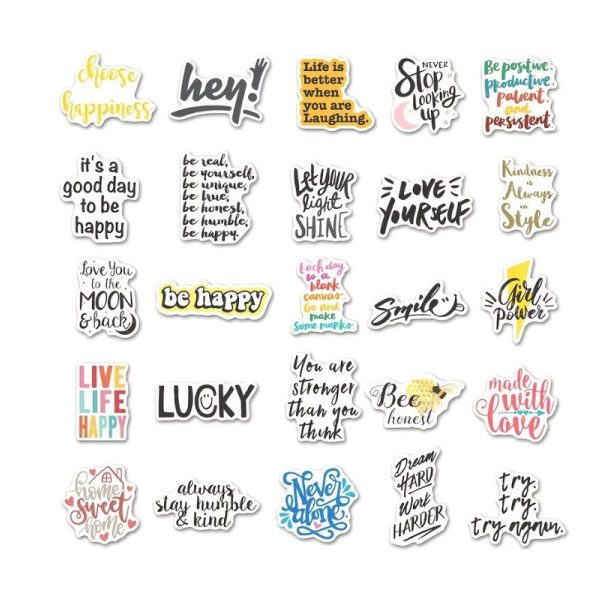 choose
happiness
hey!
Life is
better
when
you are
Laughing.
NEVER
Stop
Looking
up
Be positive.
productive.
patient
and
persistent.
it's a
good day
to be
happy
be real,
be yourself,
be unique,
be true,
be honest,
be humble,
be happy.
Let YOUR
light
SHINE
LOVE
YOURSELF
Kindness
is
Always
in
Style
Love You
to the
MOON
& back
be happy
Each day
is a
blank
canvas.
Go and
make
Some marks.
Smile
Girl
Power
LIVE
LIFE
HAPPY
LUCKY
You are
stronger
than you
think
Bee
honest
made
with
love
home
sweet
home
always
stay humble
& kind
Never
alone
Dream
HARD
Work
HARDER
try.
try.
try again.